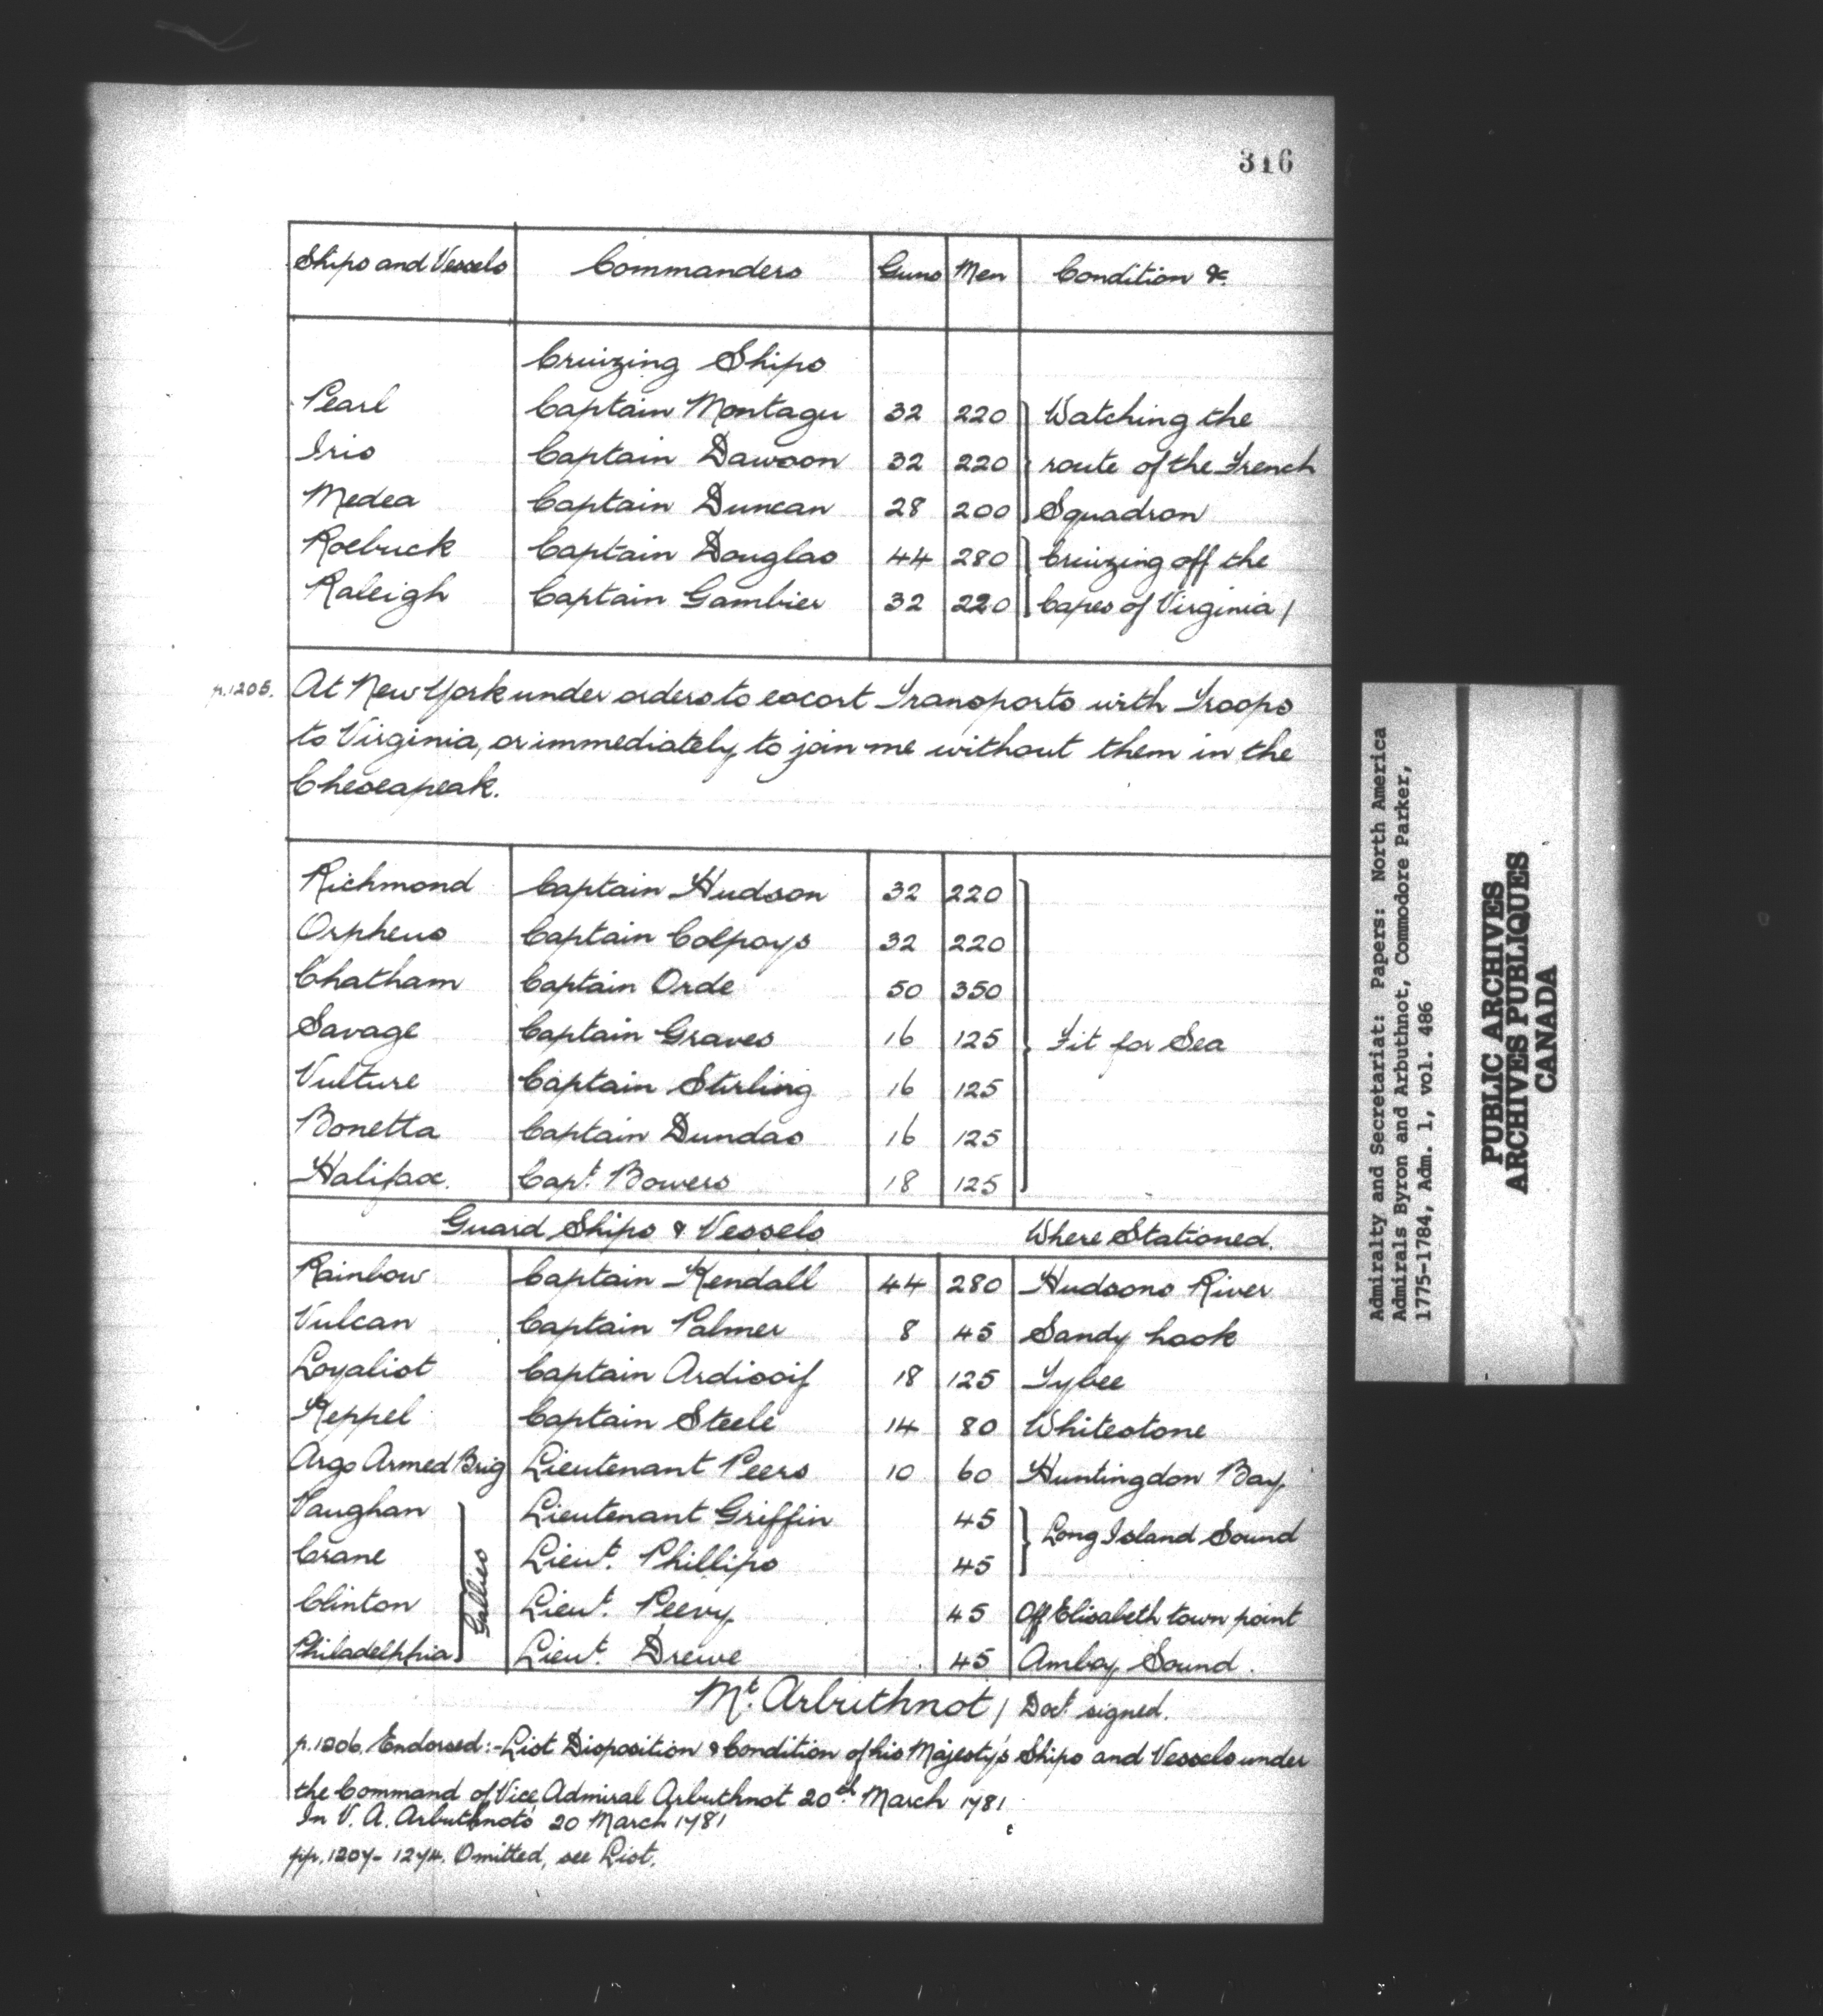 316
Ships and Vessels Commanders Guns Men Condition &c.
Cruizing Ships
Pearl Captain Montagu 32 220 Watching the
Iris Captain Dawson 32 220 route of the French
Medea Captain Duncan 28 200 Squadron
Roebuck Captain Douglas 44 280 Cruizing off the
Raleigh Captain Gambier 32 220 Capes of Virginia /
p.1205. At New York under orders to escort Transports with Troops
to Virginia, or immediately to join me without them in the
Cheseapeak.
Richmond Captain Hudson 32 220
Orpheus Captain Colpoys 32 220
Chatham Captain Orde 50 350
Savage Captain Graves 16 125 Fit for Sea
Vulture Captain Stirling 16 125
Bonetta Captain Dundas 16 125
Halifax. Capt. Bowers 18 125
Guard Ships & Vessels Where Stationed.
Rainbow Captain Kendall 44 280 Hudsons River
Vulcan Captain Palmer 8 45 Sandy hook
Loyalist Captain Ardisoif 18 125 Tybee
Keppel Captain Steele 14 80 Whitestone
Argo Armed Brig Lieutenant Peers 10 60 Huntingdon Bay
Vaughan Lieutenant Griffin 45 Long Island Sound
Crane Lieut. Phillips 45
Gallies
Clinton Lieut. Peevy 45 Off Elisabeth town point
Philadelphia Lieut. Drewe 45 Amboy Sound.
Mt. Arbuthnot / Doct signed.
p.1206. Endorsed:- List Disposition & Condition of his Majesty's Ships and Vessels under
the Command of Vice Admiral Arbuthnot 20th March 1781
In V. A. Arbuthnots 20 March 1781
pp. 1207-1274. Omitted, see List.
Admiralty and Secretariat: Papers: North America
Admirals Byron and Arbuthnot, Commodore Parker,
1775-1784, Adm. 1, vol. 486
PUBLIC ARCHIVES
ARCHIVES PUBLIQUES
CANADA